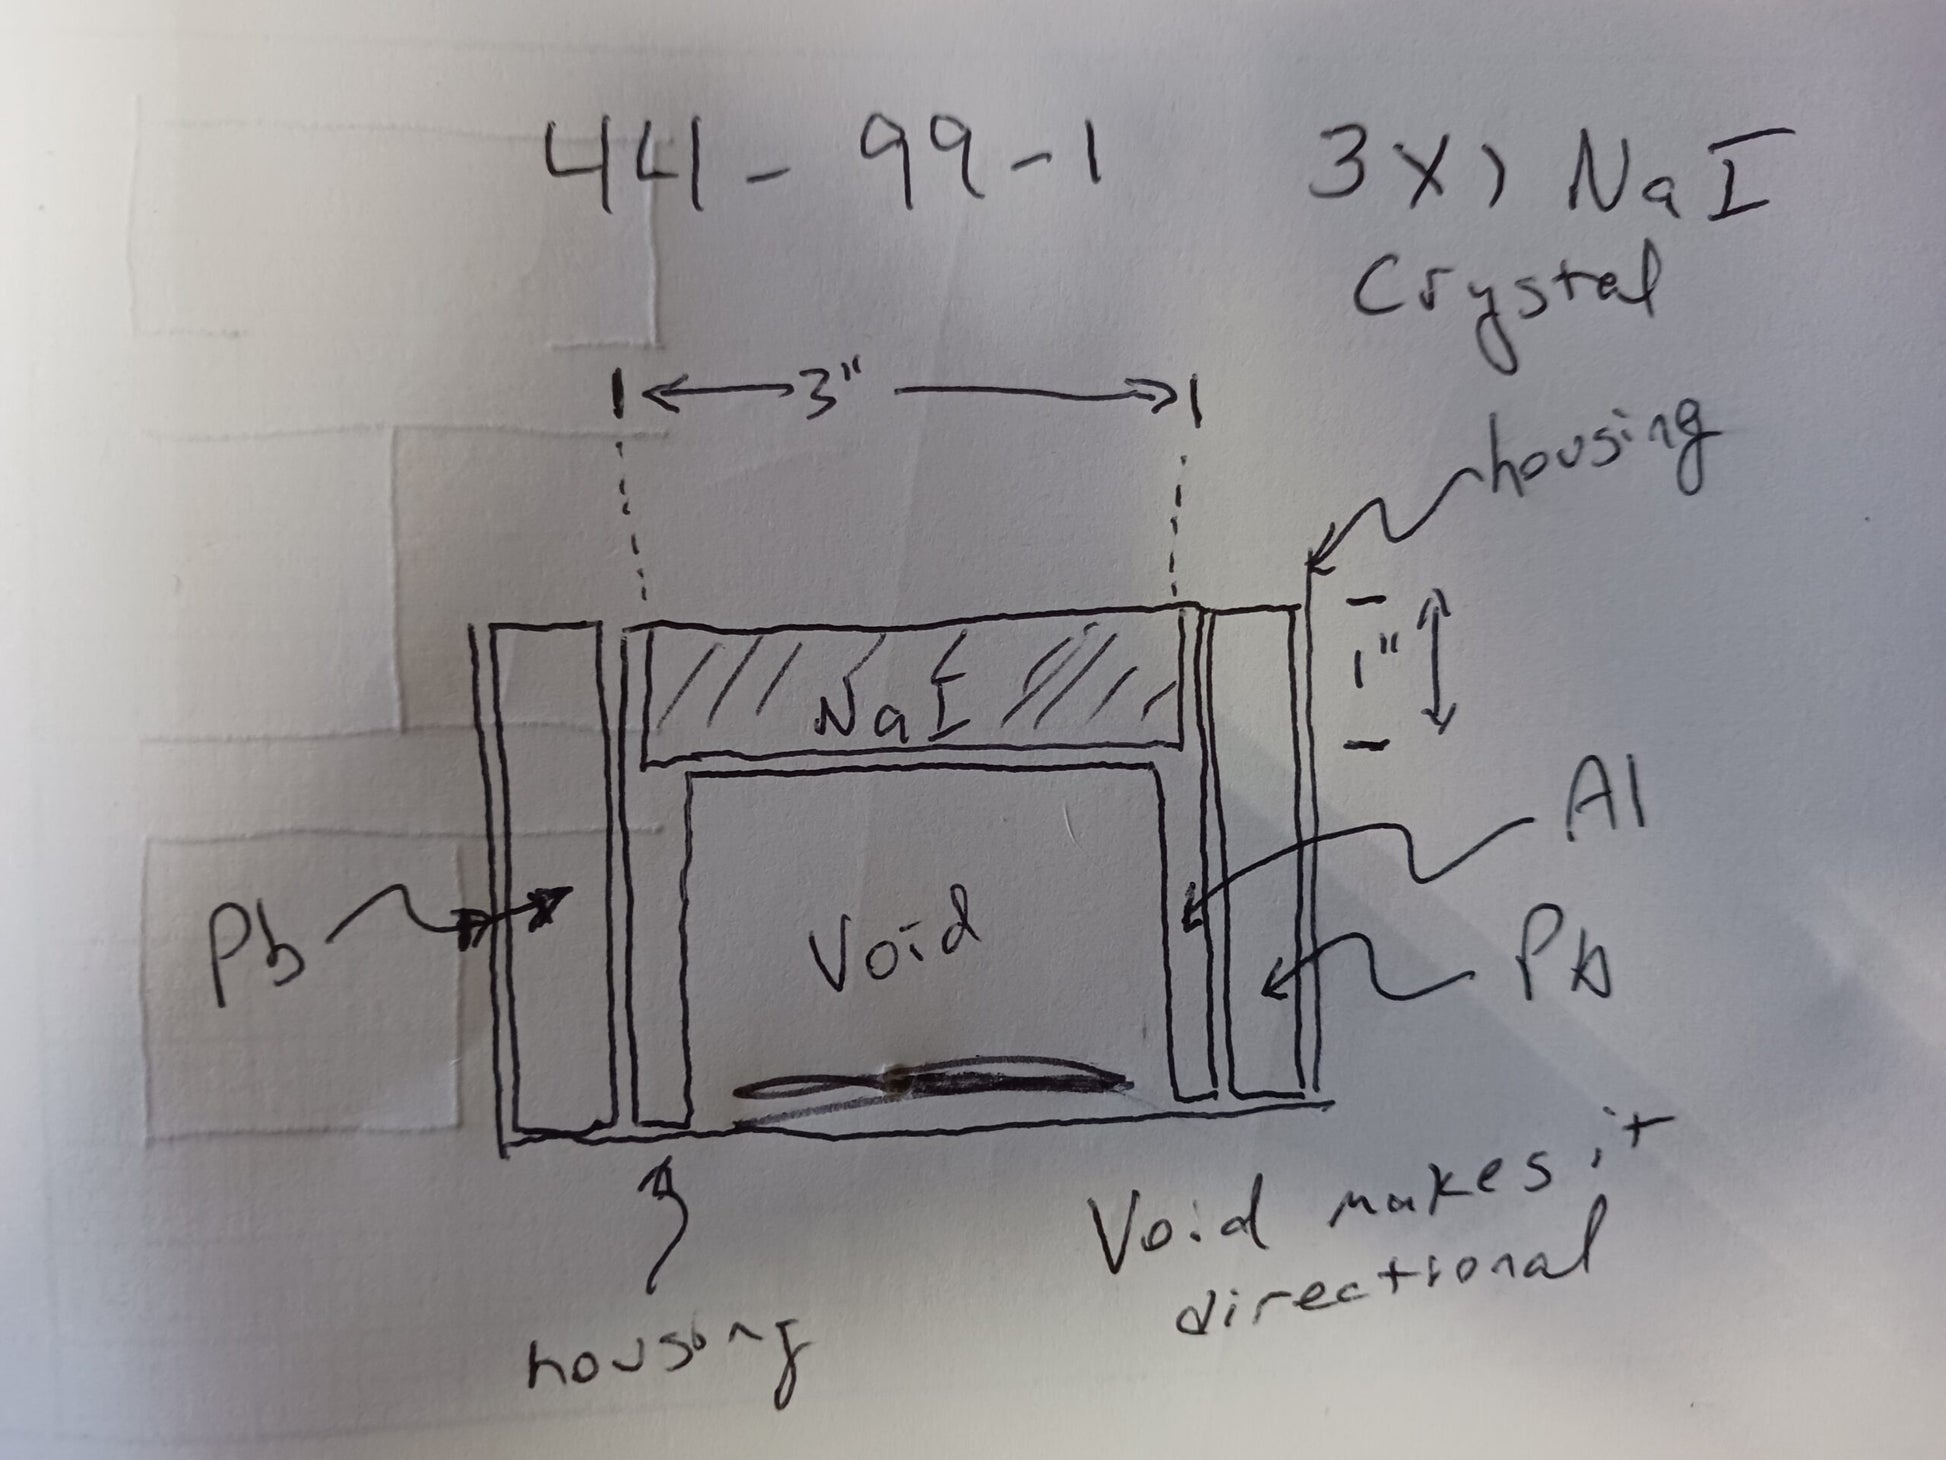 44-99-1
3x1 NaI
Crystal
3"
housing
1"
NaI
Al
Pb
Void
Pb
Void makes it
directional
housing